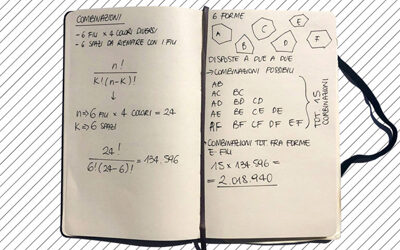 COMBINAZIONI
- 6 FILI × 4 COLORI DIVERSI
- 6 SPAZI DA RIEMPIRE CON I FILI
n!
K!(n-K)!
↓
n => 6 FILI × 4 COLORI = 24
K => 6 SPAZI
24!
6!(24-6)!
= 134.596
6 FORME
A B C D E F
DISPOSTE A DUE A DUE
→ COMBINAZIONI POSSIBILI
AB
AC BC
AD BD CD
AE BE CE DE
AF BF CF DF EF
TOT. 15 COMBINAZIONI
• COMBINAZIONI TOT. FRA FORME
E FILI
15 × 134.596 =
= 2.018.940